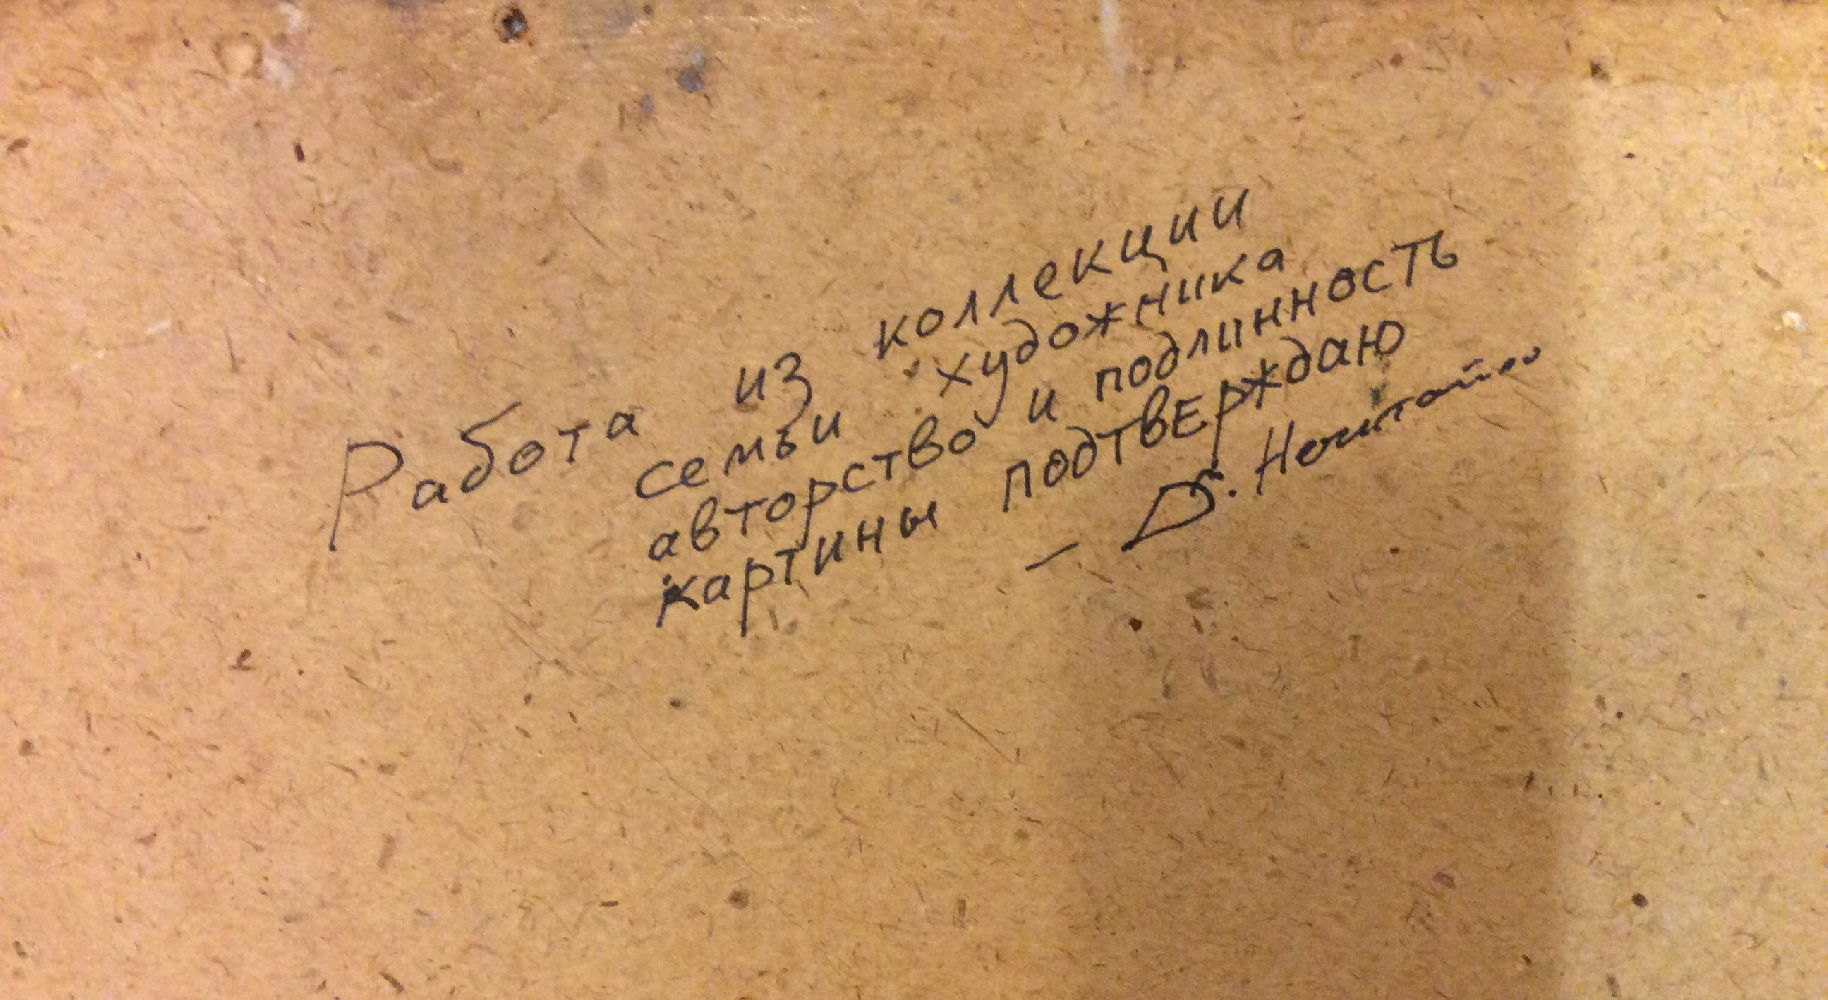 Работа из коллекции
семьи художника
авторство и подлинность
картины подтверждаю